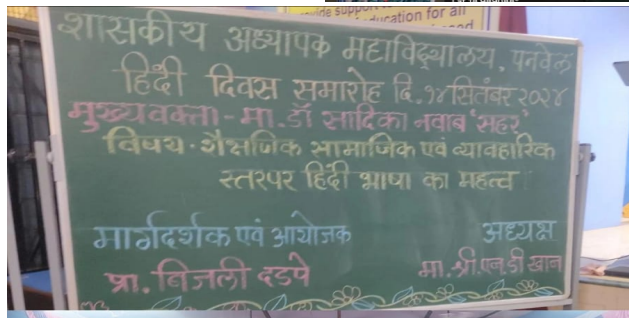 education for all
शासकीय अध्यापक महाविद्यालय, पनवेल
हिंदी दिवस समारोह दि. १४ सितंबर २०२४
मुख्यवक्ता - मा. डॉ सादिका नवाब 'सहर'
विषय · शैक्षणिक सामाजिक एवं व्यावहारिक
स्तरपर हिंदी भाषा का महत्व
मार्गदर्शक एवं आयोजक
अध्यक्ष
प्रा. बिजली दडपे
मा. श्री. एन. डी खान